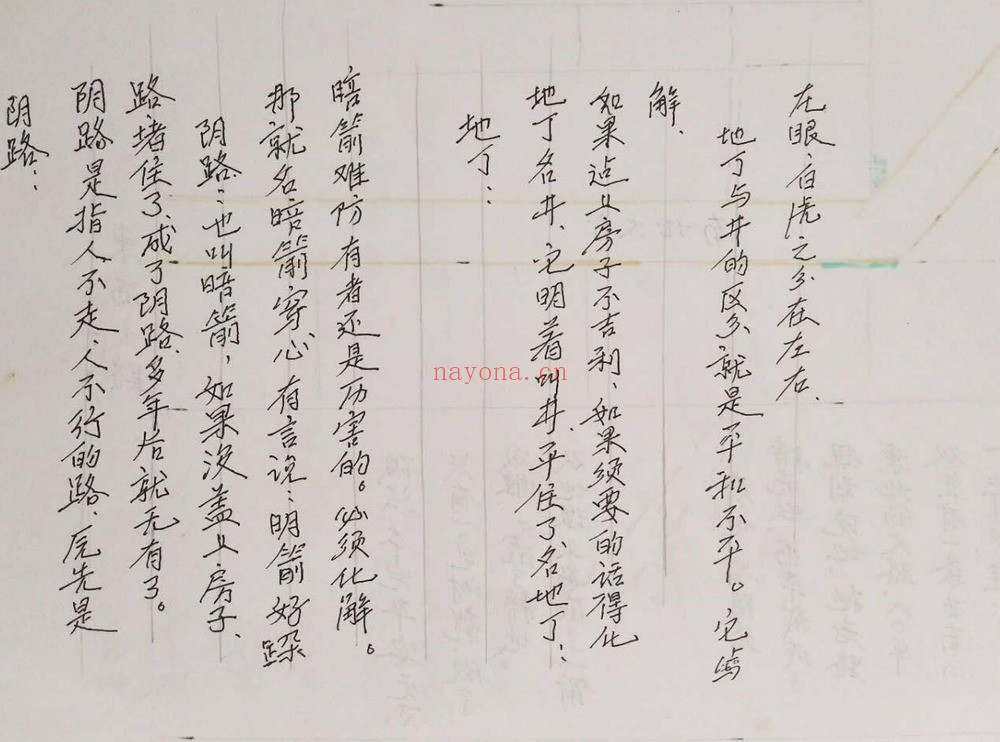 阴路:
阴路是指人不走、人不行的路、原先是
路、堵住了、成了阴路、多年后就无有了。
阴路:也叫暗箭,如果没盖上房子、
那就名暗箭穿心 有言说:明箭好跺
暗箭难防 有者还是历害的。必须化解。
地丁:
地丁名井、它明着叫井、平住了名地丁:
如果迠上房子不吉利、如果须要的话得化
解、
地丁与井的区分、就是平和不平。它
左眼、白虎之分在左右.
nayona.cn